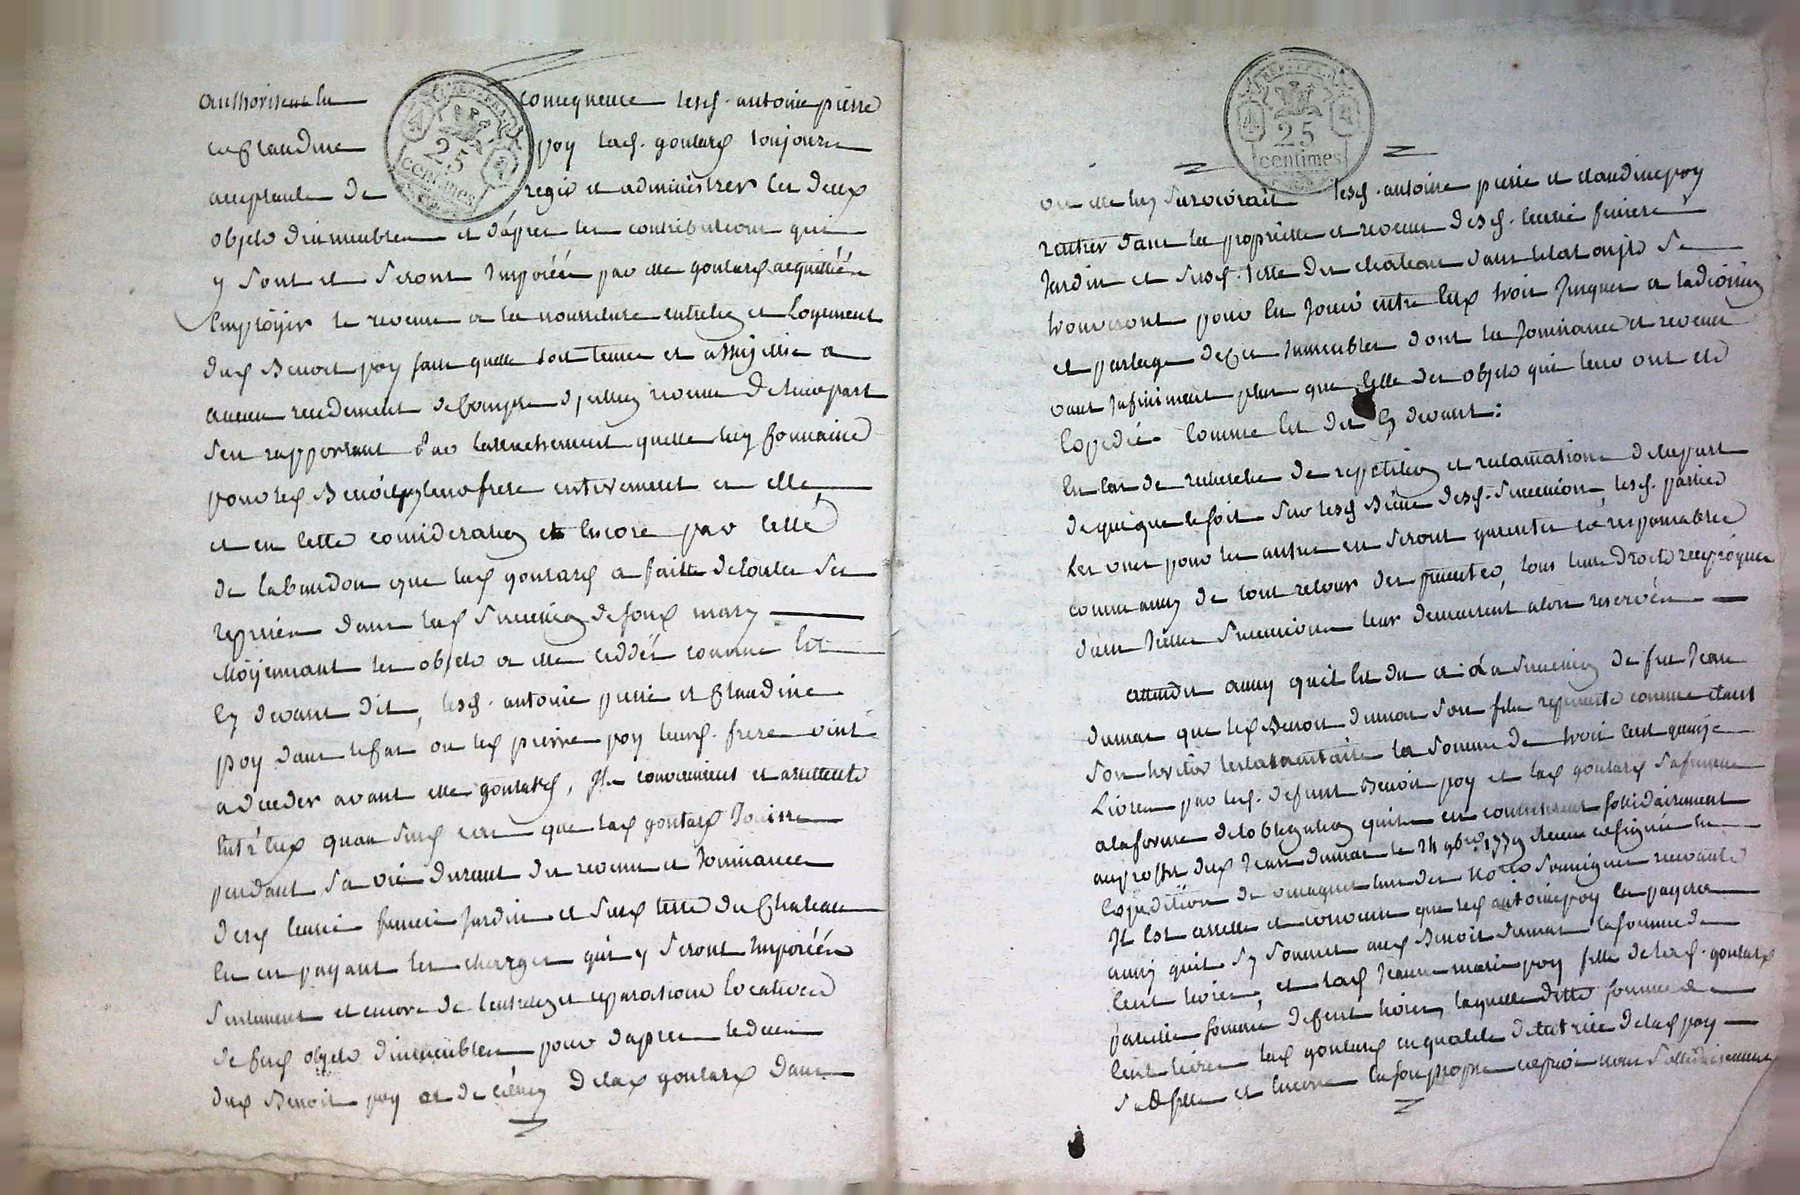 authorisent en consequence lesd. antoine pierre
et Claudine poy lad. goutard toujours
acceptante de regir et administrer les deux
objets d'immeubles et d'apres les contributions qui
y sont et seront Imposées par elle goutard acquittées
Employer le revenu a la nourriture entretien et Logement
dud. Benoit poy sans quelle soit tenue et assujettie a
aucun rendement de Compte dud. revenu De leur part
s'en rapportant par l'attachement quelle luy
pour led. Benoit poy leur frere entierement a elle,
et en cette consideration et Encore par celle
de l'abandon que lad. goutard a faitte de toutes ses
reprises dans lad. succession de son mary
Moyennant les objets a elle ceddés comme Est
Cy devant dit, lesd. antoine pierre et Claudine
poy dans le Cas ou led. pierre poy leurd. frere vint
a deceder avant elle goutard, Ils conviennent et arrettent
Entr'eux quau susd. cas que lad. goutard Jouisse
pendant sa vie durant du revenu et Jouissance
desd. Jardin et susd. terre du Chateau
En en payant les charges qui y seront Imposées
seulement et encore de l'entretien et reparations locatives
de sesd. objets d'immeubles pour d'apres le decès
dud. Benoit poy et de celuy De lad. goutard dans
25
centimes
ou elle luy survivrait lesd. antoine pierre et claudine poy
rentrer dans la proprietté et revenu desd.
Jardin et susd. terre du chateau dans l'état ou ils se
trouveront pour En Jouir entre Eux trois Jusques a la division
et partage de Ces Immeubles dont la Jouissance et revenu
vaut Infiniment plus que Celle des objets qui leur ont été
Comme Est dit Cy devant:
En Cas de recherche de repetition et reclamations de la part
de qui que ce soit sur lesd. Biens desd. successions, lesd. parties
Les unes pour les autres en seront garentes et responsables
comme aussy de tout retour des tous leurs Droits reciproques
dans Icelles successions leur demeurent alors reservés
attendu aussy qu'il Est du a La succession de feu Jean
dumas que led. Benoit dumas son fils represente comme étant
son heritier testamentaire la somme de trois Cent quinze
Livres par led. defunt Benoit poy et lad. goutard sa femme
a la forme de l'obligation quils en consentirent sollidairement
au proffit dud. Jean dumas le 24 9bre 1779
Expedition de vuë aux nottes soussignes
Il Est arretté et convenu que led. antoine poy En payera
ainsy quil s'y soumet aud. Benoit dumas la somme de
Cent livres, et lad. Jeanne marie poy fille de lad. goutard
pareille somme de Cent livres laquelle ditte somme de
Cent livres lad. goutard en qualité de tutrice de lad. poy
sa fille et Encore En son propre et privé nom sollidairement
25
centimes